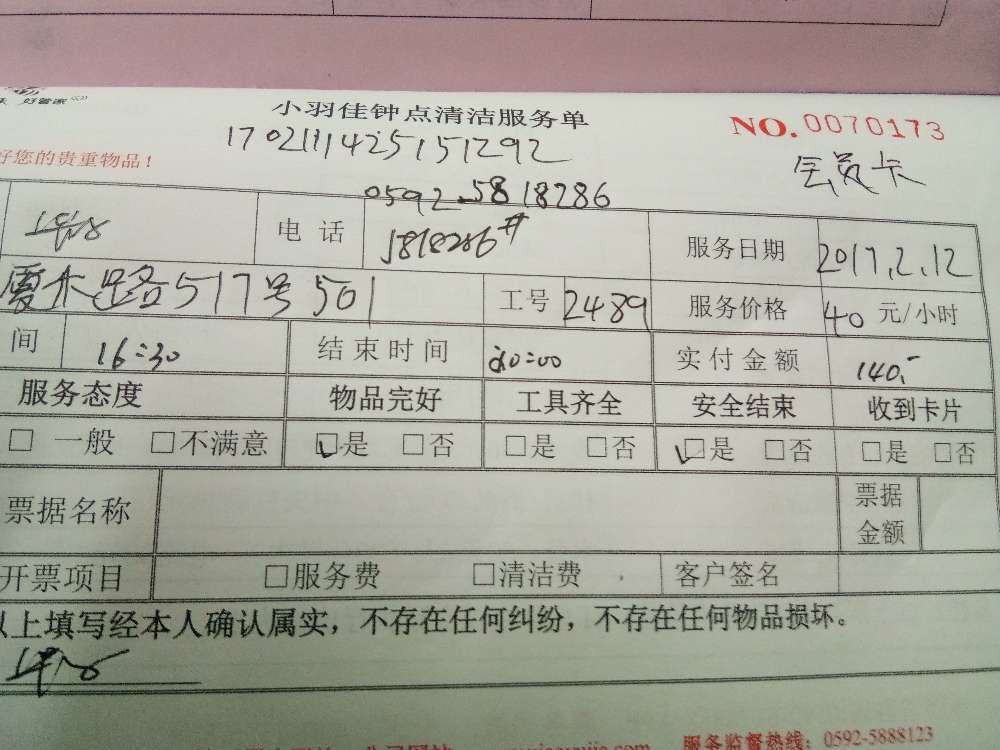 好管家
小羽佳钟点清洁服务单
NO.0070173
17021114425151292
会员卡
好您的贵重物品！
0592-5818286
电话 1818286# 服务日期 2017.2.12
厦禾路517号501 工号 2489 服务价格 40 元/小时
间 16:30 结束时间 20:00 实付金额 140.-
服务态度 物品完好 工具齐全 安全结束 收到卡片
□ 一般 □不满意 ☑是 □否 □是 □否 ☑是 □否 □是 □否
票据名称 票据金额
开票项目 □服务费 □清洁费 客户签名
以上填写经本人确认属实，不存在任何纠纷，不存在任何物品损坏。
服务监督热线：0592-5888123